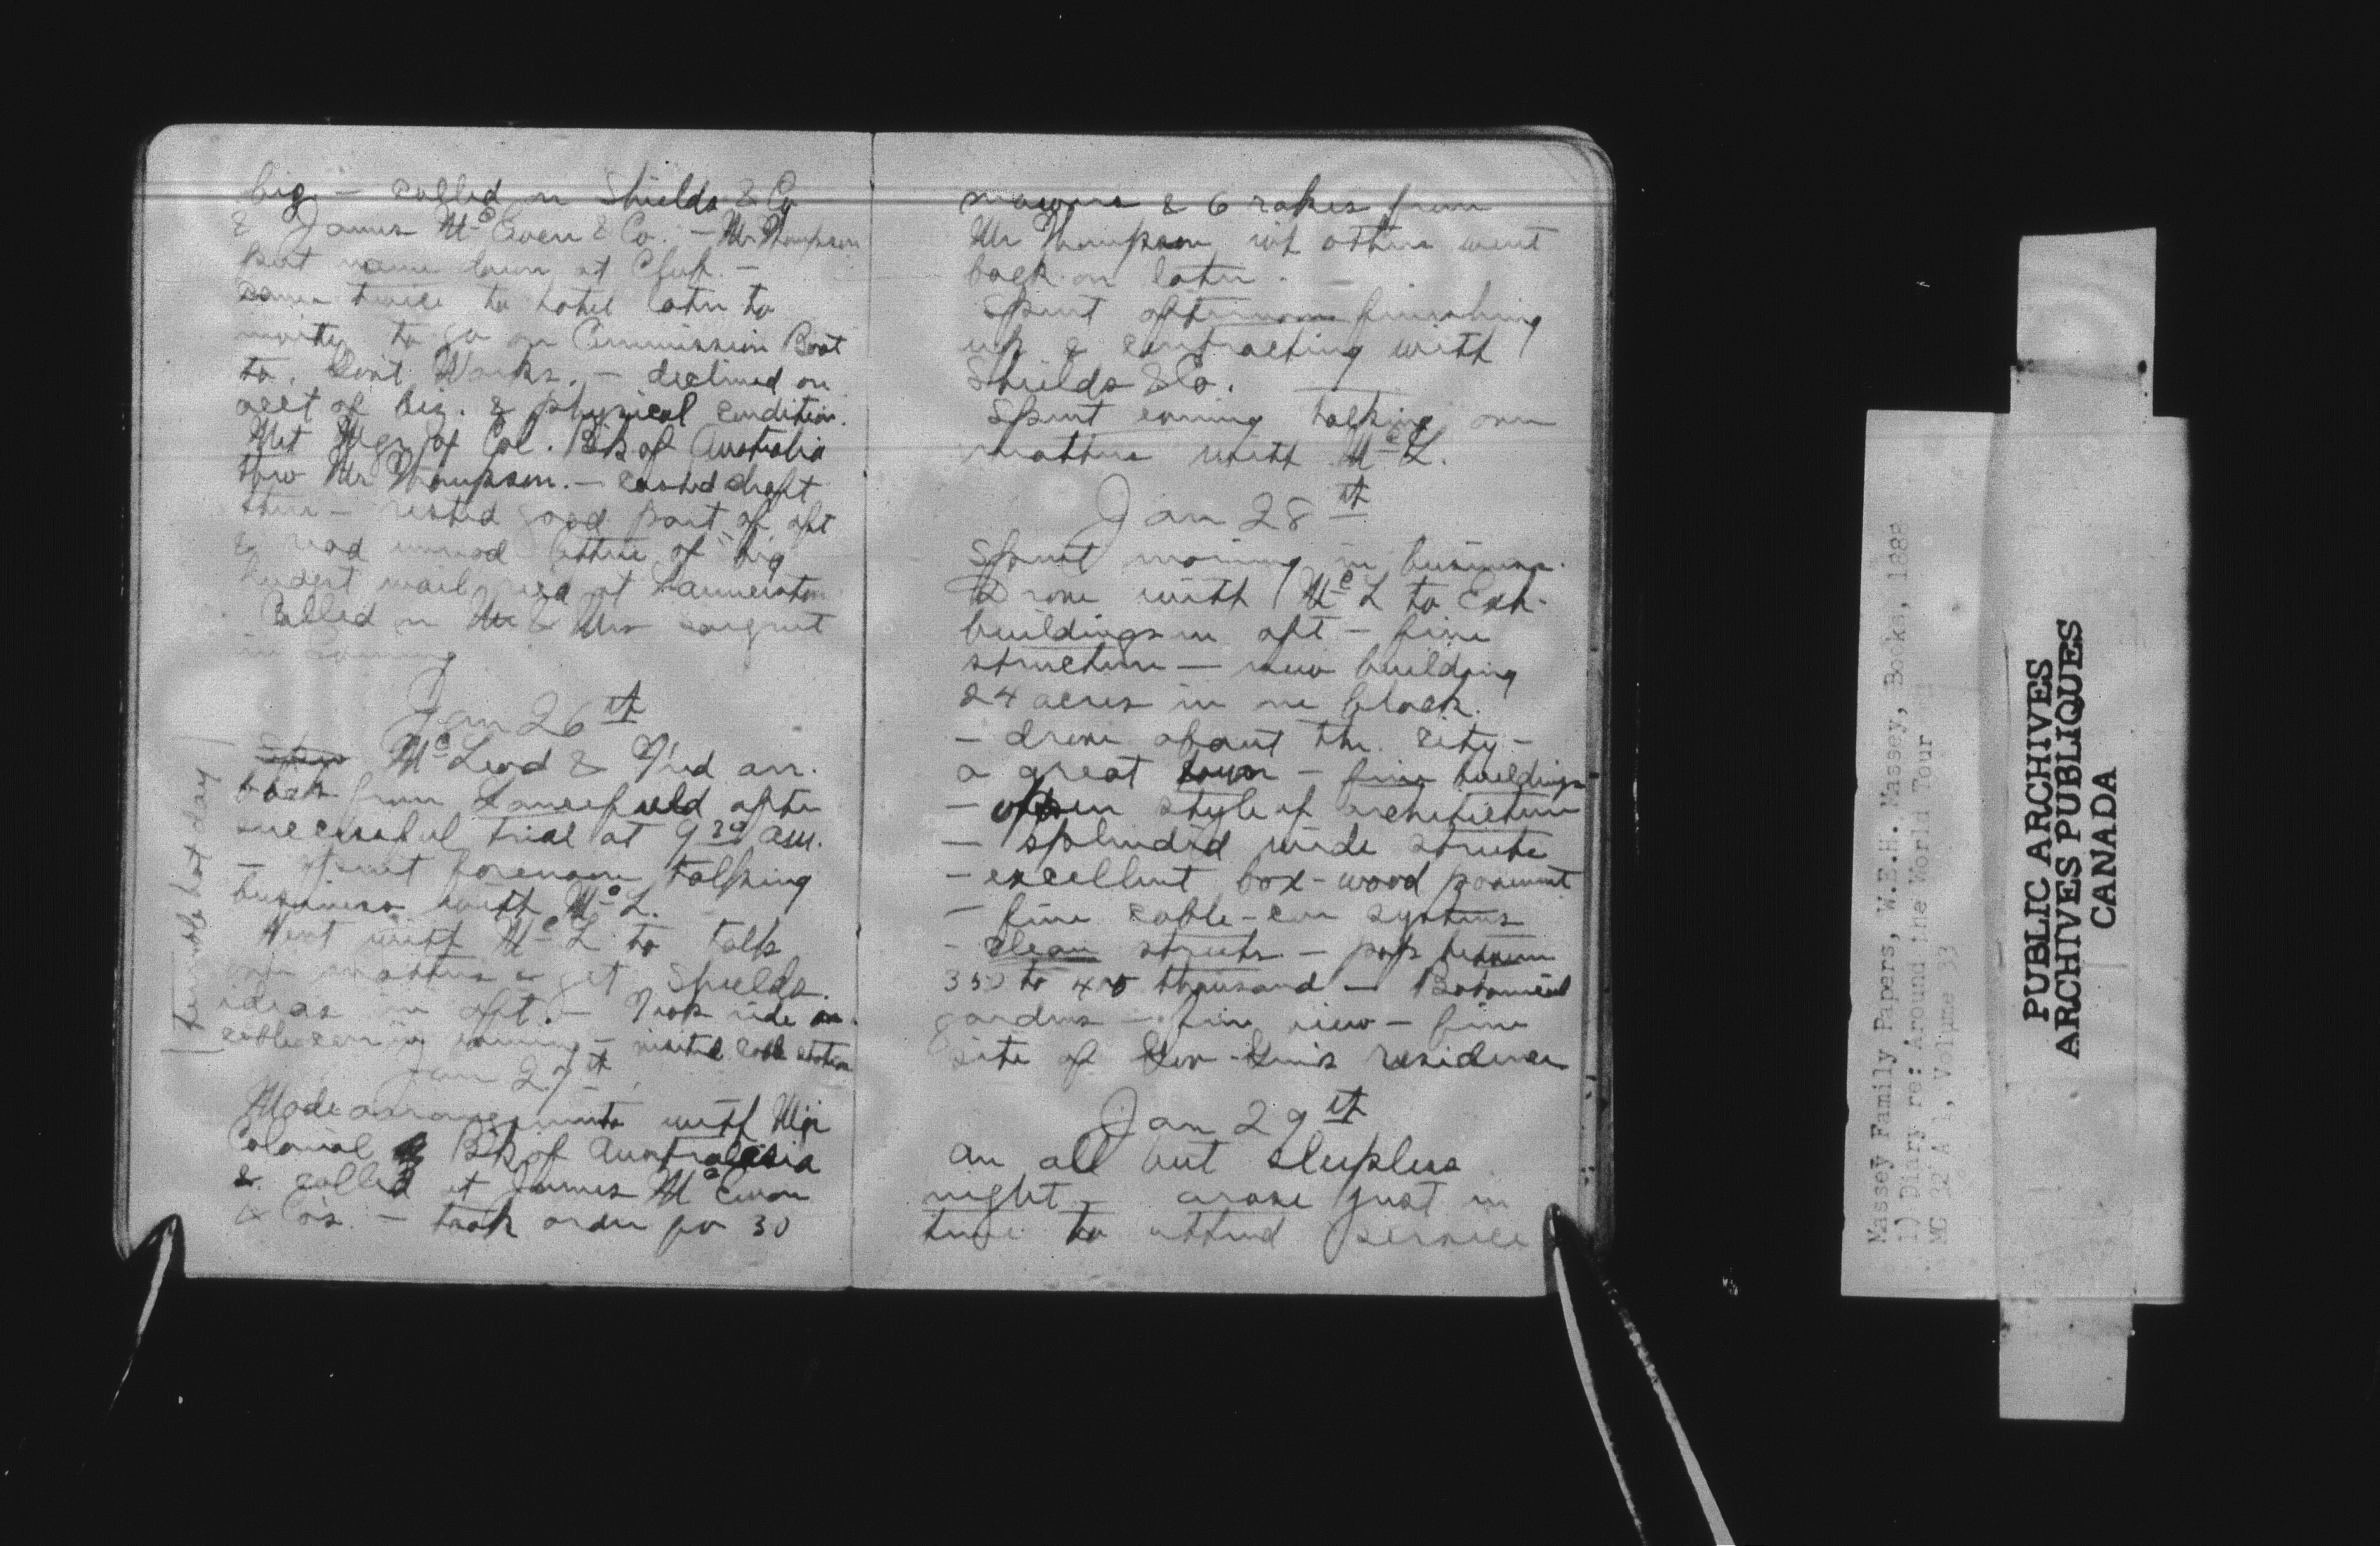 big. — called on Shields & Co
& James McEwen & Co. — Mr Thompson
put name down at Club. —
came twice to hotel later to
invite to go on Commission Boat
to. Works. — declined on
acct of biz. & physical condition.
Met Mgr of Col. Bk of Australia
thro Mr Thompson. — cashed draft
there — rested good part of aft
& read unread letters of big
budget mail rec'd at Launceston
Called on Mr & Mrs Sargent
in evening
Jan 26th
McLeod & Fred arr.
back from Lancefield after
successful trial at 9 30 a.m.
— spent forenoon talking
business with McL.
Went with McL to talk
over matters & get Shields.
ideas in aft. — Took ride on
cable car in evening — visited cable station
| terrible hot day |
Jan 27th
Made arrangements with Mgr
Colonial Bk of Australasia
& called at James McEwan
& Co's. — took order for 30
mowers & 6 rakes from
Mr Thompson wh others went
back on later. —
Spent afternoon finishing
up & contracting with
Shields & Co.
Spent evening talking over
matters with McL.
Jan 28th
Spent morning in business.
Drove with McL to Exh.
buildings in aft — fine
structure — main building
24 acres in one block.
— drove about the. city —
a great town — fine buildings
— open style of architecture
— splendid wide streets
— excellent box-wood pavement
— fine cable-car systems
— clean streets — pop. between
350 to 400 thousand — Botanical
gardens — fine view — fine
site of Gov-Gen's residence
Jan 29th
An all but sleepless
night — arose just in
time to attend service
Massey Family Papers, W.E.H. Massey, Books, 1888
1) Diary re: Around the World Tour
MG 32 A 1, Volume 33
PUBLIC ARCHIVES
ARCHIVES PUBLIQUES
CANADA